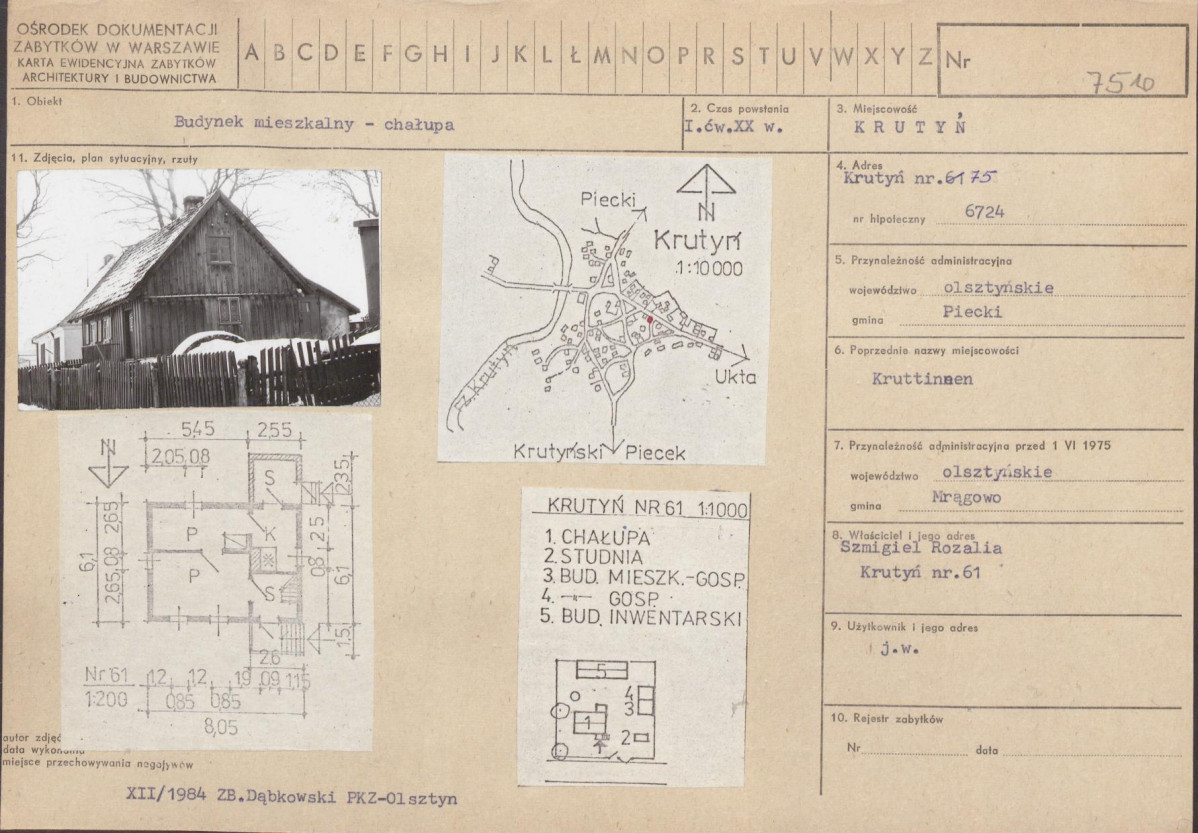 OŚRODEK DOKUMENTACJI
ZABYTKÓW W WARSZAWIE
KARTA EWIDENCYJNA ZABYTKÓW
ARCHITEKTURY I BUDOWNICTWA
A B C D E F G H I J K L Ł M N O P R S T U V W X Y Z
Nr
7510
1. Obiekt
Budynek mieszkalny - chałupa
2. Czas powstania
I.ćw.XX w.
3. Miejscowość
K R U T Y Ń
11. Zdjęcia, plan sytuacyjny, rzuty
4. Adres
Krutyń nr.61 75
nr hipoteczny 6724
5. Przynależność administracyjna
województwo olsztyńskie
gmina Piecki
6. Poprzednie nazwy miejscowości
Kruttinnen
7. Przynależność administracyjna przed 1 VI 1975
województwo olsztyńskie
gmina Mrągowo
8. Właściciel i jego adres
Szmigiel Rozalia
Krutyń nr.61
9. Użytkownik i jego adres
j.w.
10. Rejestr zabytków
Nr data
Piecki
N
Krutyń
1:10 000
rz. Krutyń
Ukta
Krutyński Piecek
N
5,45 2,55
2,05 0,8
S
2,35
P
K
P
S
2,65 0,8 2,65
6,1
2,5
0,8
6,1
1,5
2,6
Nr 61
1:200
1,2 1,2 1,9 0,9 1,15
0,85 0,85
8,05
KRUTYŃ NR 61 1:1000
1. CHAŁUPA
2. STUDNIA
3. BUD. MIESZK.-GOSP.
4. —"— GOSP.
5. BUD. INWENTARSKI
5
4
3
1
2
autor zdjęć
data wykonania
miejsce przechowywania negatywów
XII/1984 ZB.Dąbkowski PKZ-Olsztyn